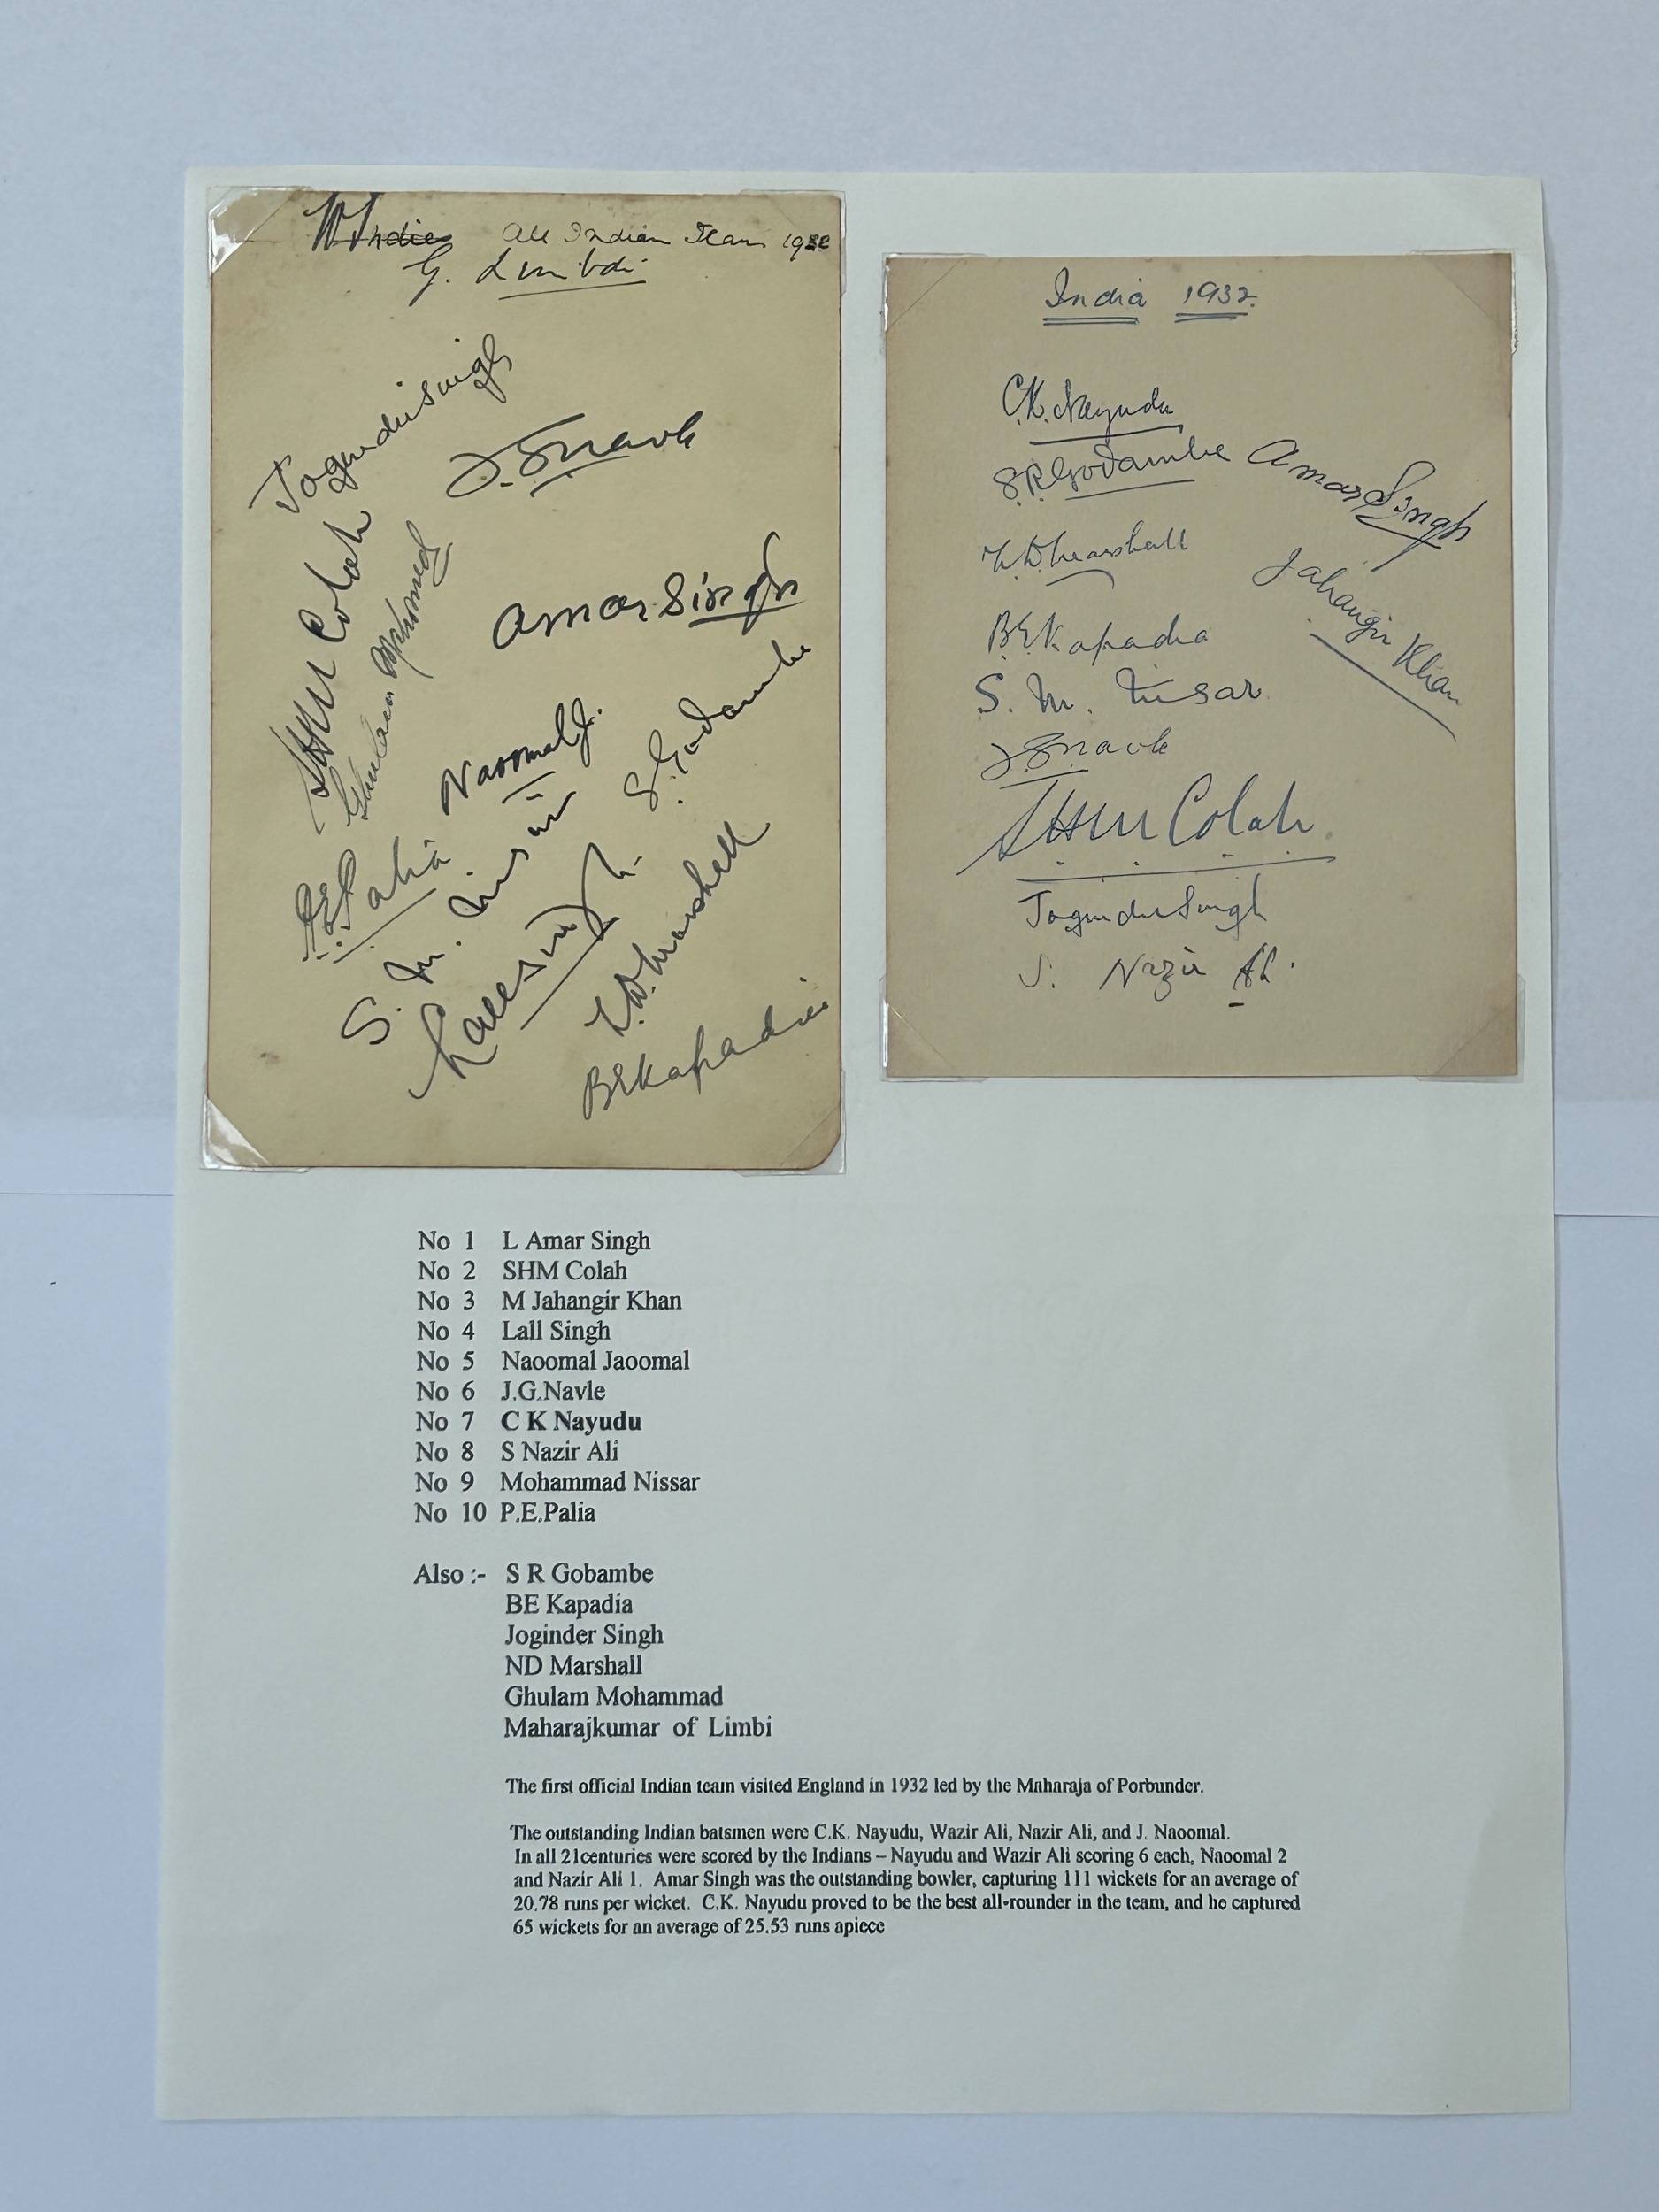 W Indies All Indian Team 1932
G. Limbdi
Joginder Singh
J. G Navle
SHM Colah
Ghulam Mahomed
Amar Singh
Naoomal J.
S. Godambe
P E Palia
S. M. Nissar
Lall Singh
N.D. Marshall
B E Kapadia
India 1932.
C.K. Nayudu
S.R. Godambe
Amar Singh
N.D. Marshall
Jahangir Khan
B.E. Kapadia
S. M. Nisar
J G Navle
SHM Colah
Joginder Singh
S. Nazir Ali.
No 1 L Amar Singh
No 2 SHM Colah
No 3 M Jahangir Khan
No 4 Lall Singh
No 5 Naoomal Jaoomal
No 6 J.G.Navle
No 7 C K Nayudu
No 8 S Nazir Ali
No 9 Mohammad Nissar
No 10 P.E.Palia
Also :- S R Gobambe
BE Kapadia
Joginder Singh
ND Marshall
Ghulam Mohammad
Maharajkumar of Limbi
The first official Indian team visited England in 1932 led by the Maharaja of Porbunder.
The outstanding Indian batsmen were C.K. Nayudu, Wazir Ali, Nazir Ali, and J. Naoomal.
In all 21centuries were scored by the Indians – Nayudu and Wazir Ali scoring 6 each, Naoomal 2
and Nazir Ali 1. Amar Singh was the outstanding bowler, capturing 111 wickets for an average of
20.78 runs per wicket. C.K. Nayudu proved to be the best all-rounder in the team, and he captured
65 wickets for an average of 25.53 runs apiece